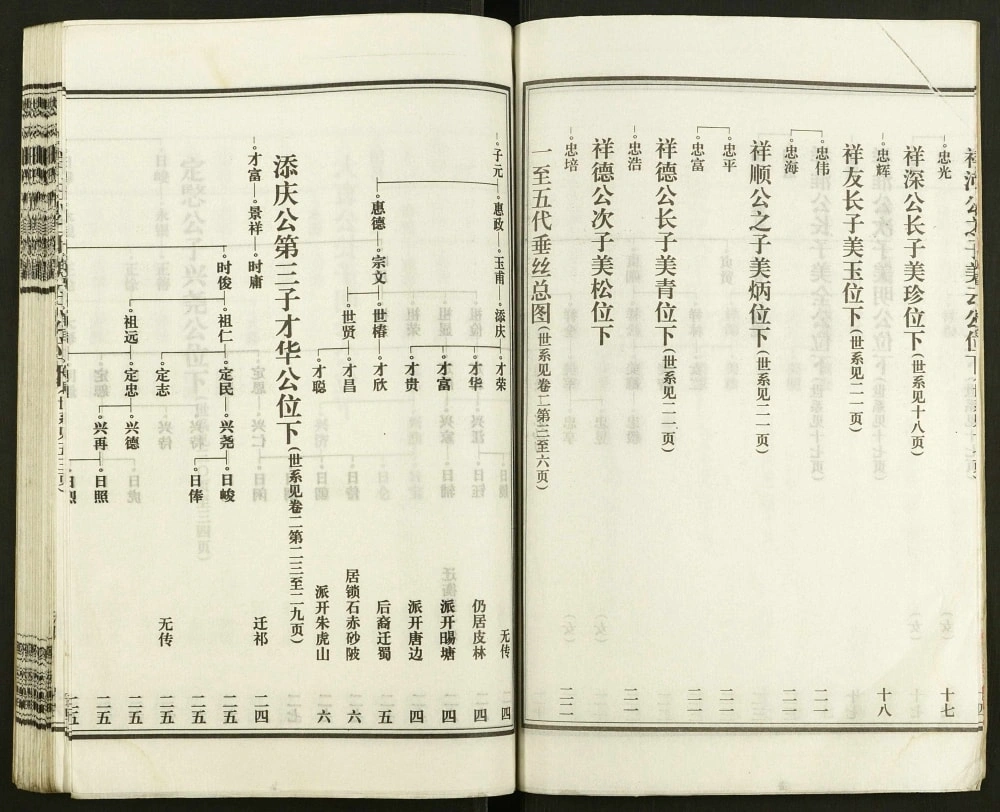 祥海公之子美云公位下
忠光 十七
祥深公长子美珍位下(世系见十八页)
忠辉 十八
祥友长子美玉位下(世系见二一页)
忠伟 二一
忠海 二一
祥顺公之子美炳位下(世系见二一页)
忠平 二一
忠富 二一
祥德公长子美青位下(世系见二二页)
忠浩 二一
祥德公次子美松位下
忠培 二二
一至五代垂丝总图(世系见卷二第三至六页)
子元 惠政 玉甫 添庆 才荣 无传 四
才华 仍居皮林 四
才富 派开晹塘 四
才贵 派开唐边 四
惠德 宗文 世椿 才欣 后裔迁蜀 五
世贤 才昌 居锁石赤砂陂 六
才聪 派开朱虎山 六
添庆公第三子才华公位下(世系见卷二第二三至二九页)
才富 景祥 时庸 迁祁 二四
时俊 祖仁 定民 兴尧 日峻 二五
日俸 二五
定志 无传 二五
祖远 定忠 兴德 二五
兴再 日照 二五
日烈 二五